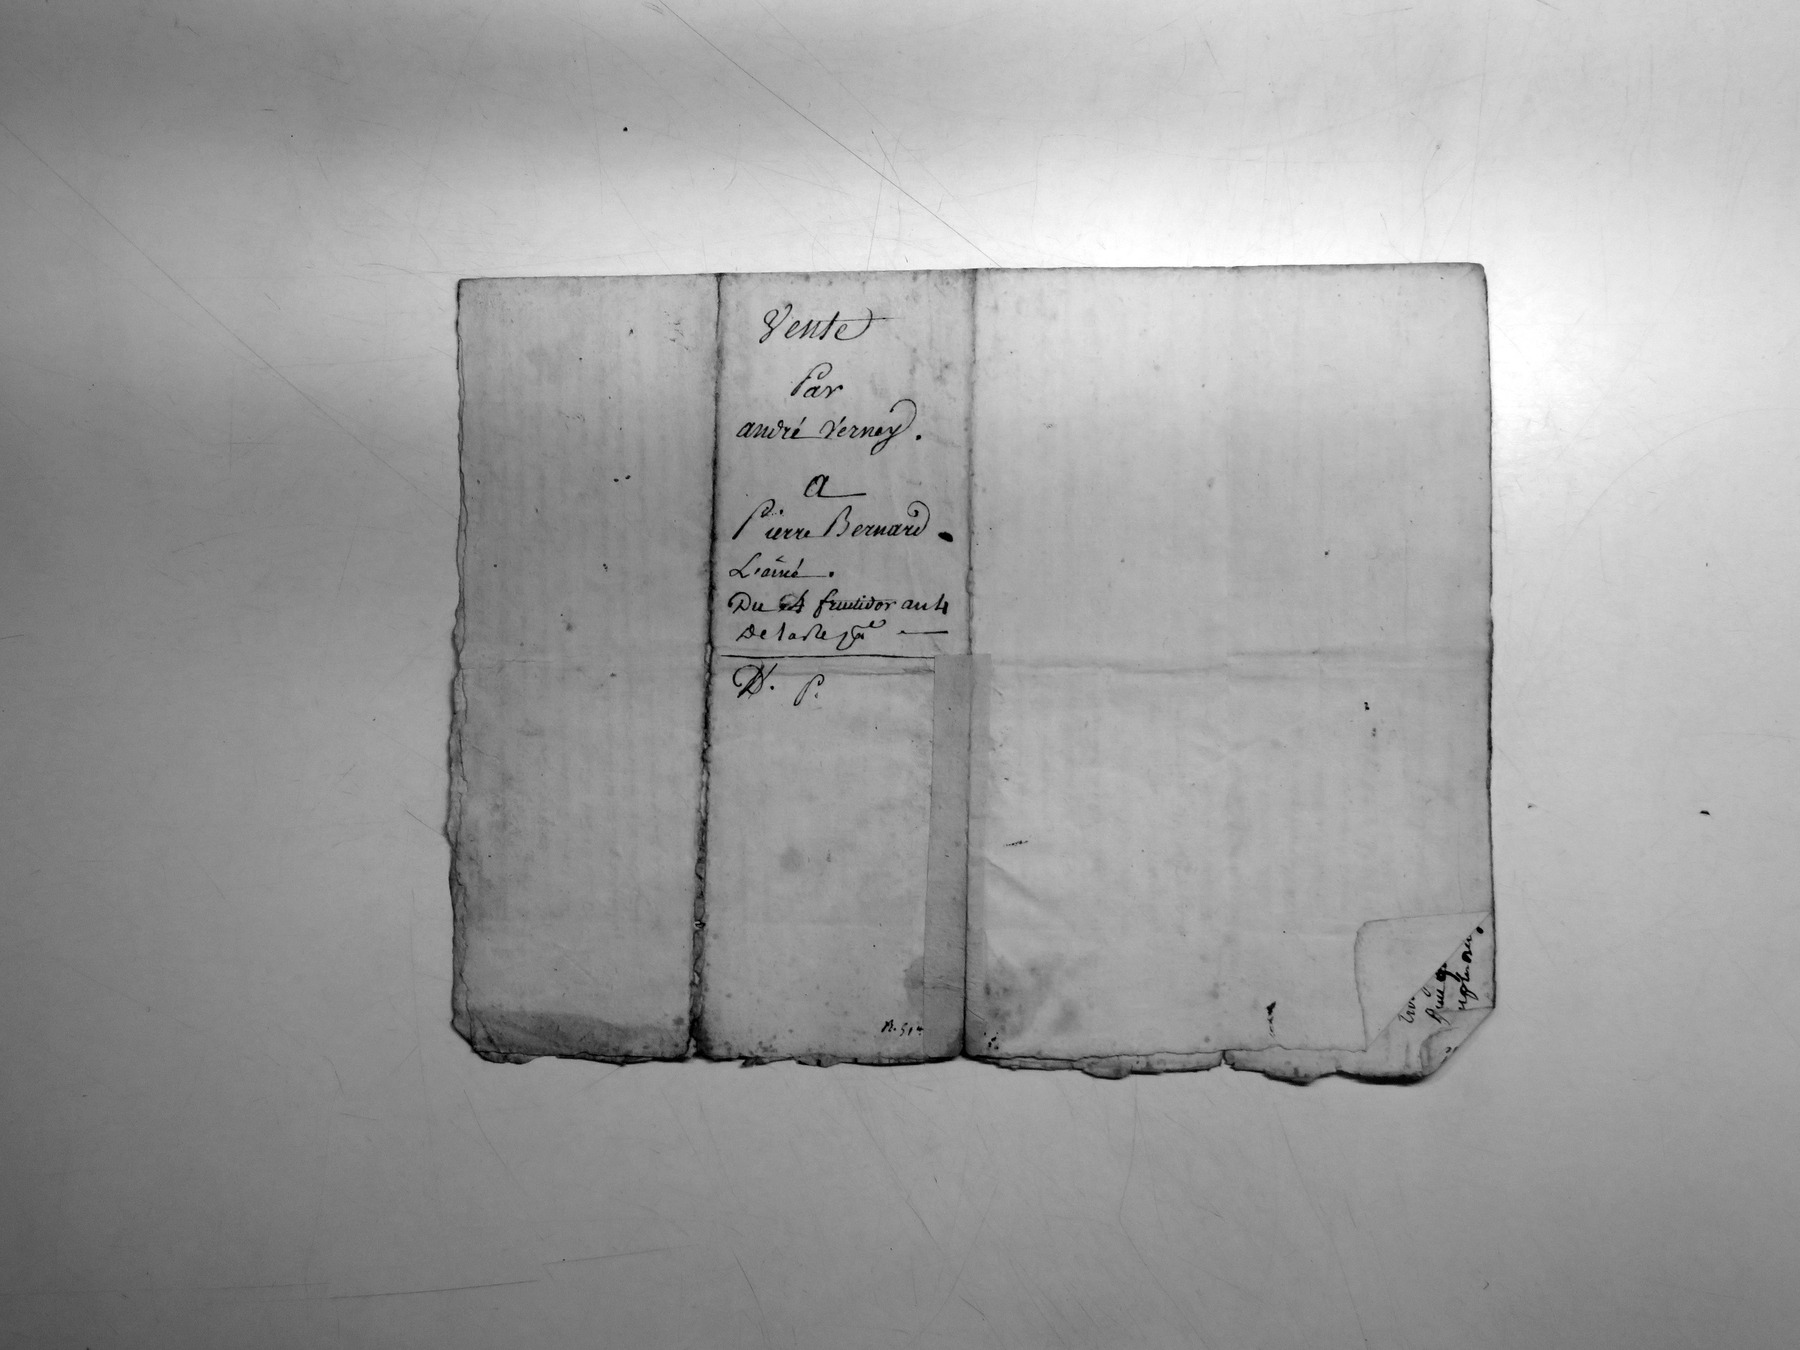 Vente
Par
andré Vernay.
a
Pierre Bernard.
L'ainé.
Du 4 fructidor an 4
De la Rep que
D. P.